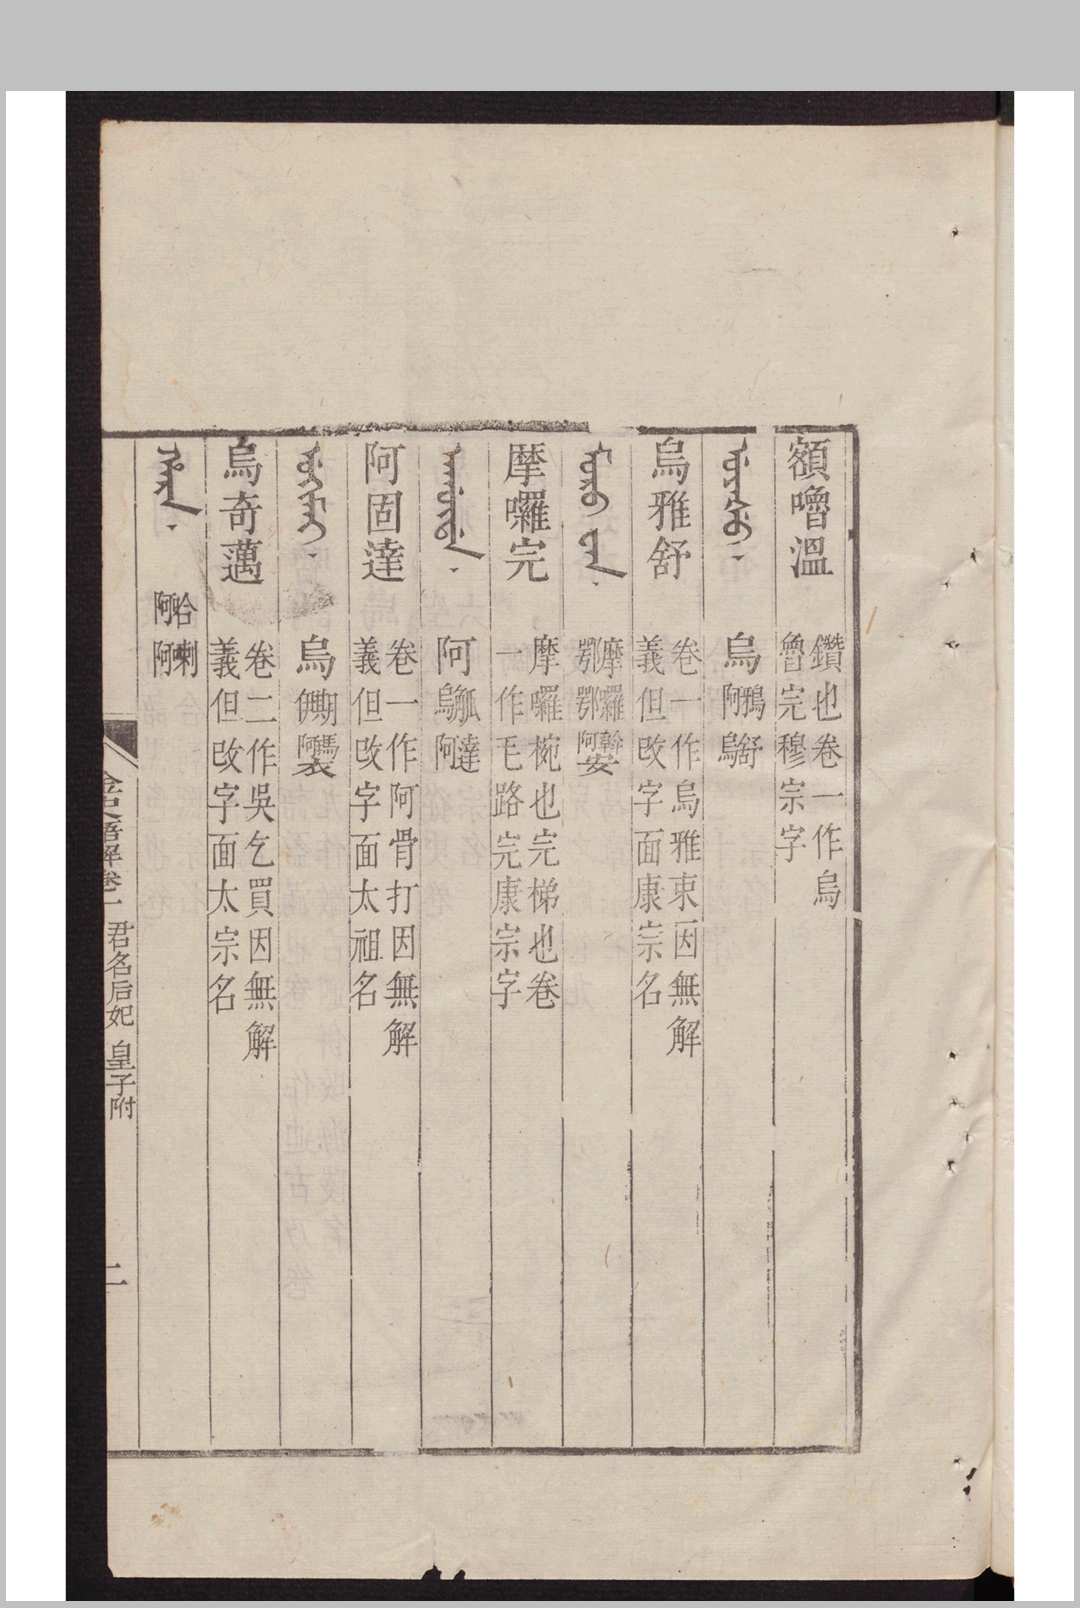 額嚕溫 鑽也卷一作烏
魯完穆宗字
ᡠᠶᠠᡧᡠ 烏 鴉阿 舒烏
烏雅舒 卷一作烏雅束因無解
義但改字面康宗名
ᠮᠣᡵᠣ ᠸᠠᠨ 摩鄂 囉鄂 斡阿安
摩囉完 摩囉椀也完梯也卷
一作毛路完康宗字
ᠠᡤᡡᡩᠠ 阿 觚烏 達阿
阿固達 卷一作阿骨打因無解
義但改字面太祖名
ᡠᡴᡳᠮᠠᡳ 烏 期伊 瑪阿衣
烏奇邁 卷二作吳乞買因無解
義但改字面太宗名
ᡥᠠᡵᠠ 哈阿 喇阿
金史語解卷一 君名后妃 皇子附 二